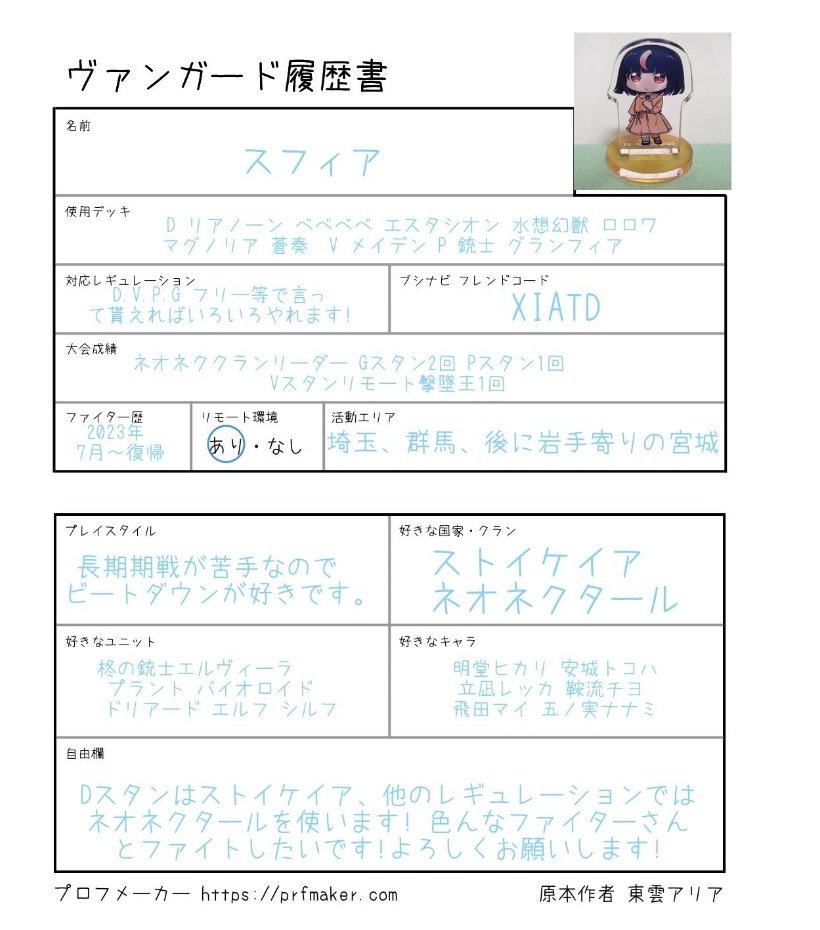 ヴァンガード履歴書
名前
スフィア
使用デッキ
D リアノーン ベベベベ エスタシオン 水想幻獣 ロロワ
マグノリア 蒼奏 V メイデン P 銃士 グランフィア
対応レギュレーション
D.V.P.G フリー等で言っ
て貰えればいろいろやれます!
ブシナビ フレンドコード
XIATD
大会成績
ネオネククランリーダー Gスタン2回 Pスタン1回
Vスタンリモート撃墜王1回
ファイター歴
2023年
7月～復帰
リモート環境
あり・なし
活動エリア
埼玉、群馬、後に岩手寄りの宮城
プレイスタイル
長期期戦が苦手なので
ビートダウンが好きです。
好きな国家・クラン
ストイケイア
ネオネクタール
好きなユニット
柊の銃士エルヴィーラ
プラント バイオロイド
ドリアード エルフ シルフ
好きなキャラ
明堂ヒカリ 安城トコハ
立凪レッカ 鞍流チヨ
飛田マイ 五ノ実ナナミ
自由欄
Dスタンはストイケイア、他のレギュレーションでは
ネオネクタールを使います! 色んなファイターさん
とファイトしたいです!よろしくお願いします!
プロフメーカー https://prfmaker.com
原本作者 東雲アリア